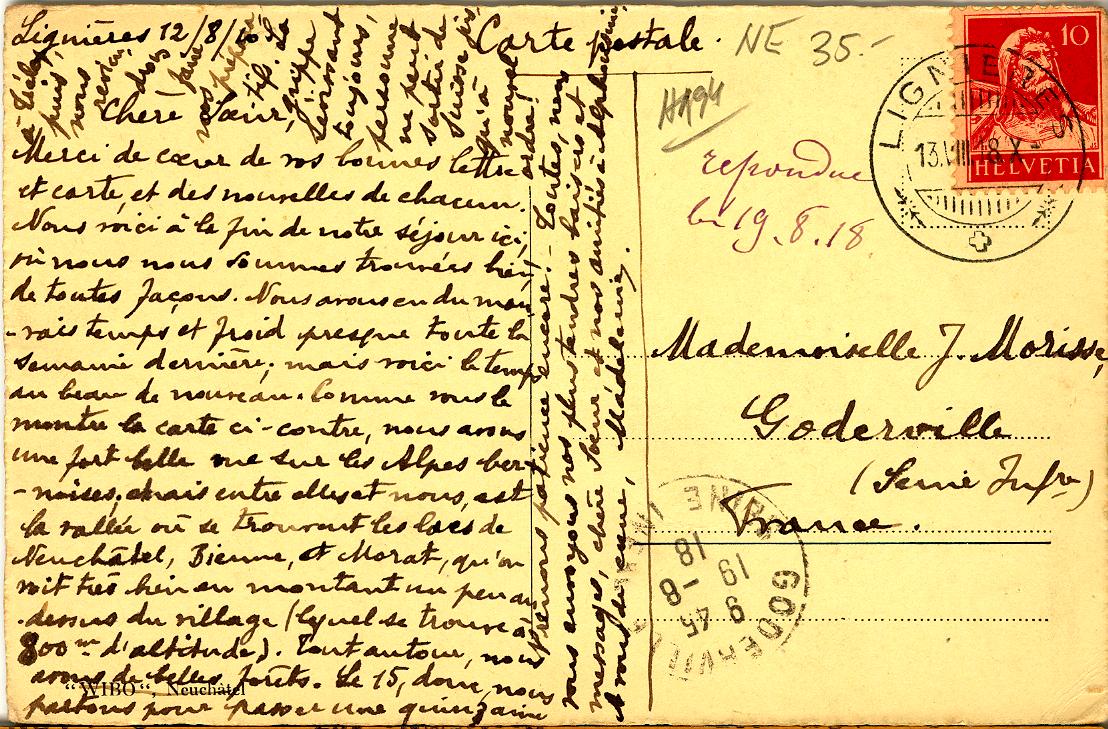 Lignières 12/8/
Carte postale.
NE 35.-
HA94
10
HELVETIA
LIGNIÈRES
13.VIII.18.X-
Chère Sœur,
Merci de cœur de vos bonnes lettre
et carte, et des nouvelles de chacun.
Nous voici à la fin de notre séjour ici,
où nous nous sommes trouvées bien
de toutes façons. Nous avons eu du mau
-vais temps et froid presque toute la
semaine dernière; mais voici le temps
au beau de nouveau. Comme vous le
montre la carte ci-contre, nous avons
une fort belle vue sur les Alpes ber-
-noises; mais entre elles et nous, est
la vallée où se trouvent les lacs de
Neuchâtel, Bienne, et Morat, qu'on
voit très bien en montant un peu au
-dessus du village (lequel se trouve à
800 m d'altitude). Tout autour, nous
avons de belles forêts. Le 15, donc, nous
partons pour passer une quinzaine
"WIBO", Neuchâtel
à
puis,
nous
faire
nos
grippe
sévissant
toujours,
personne
ne peut
sortir de
Suisse
qu'à
nouvel
ordre!
prenons patience encore! - Toutes, nous
vous envoyons nos plus tendres baisers et
messages, chère Sœur et nos amitiés à Alphonsine.
A vous de cœur, Madeleine.
repondue
le 19.8.18
Mademoiselle J. Morisse,
Goderville
(Seine Infre)
France.
GODERVILLE
SEINE
9 45
19 - 8
18